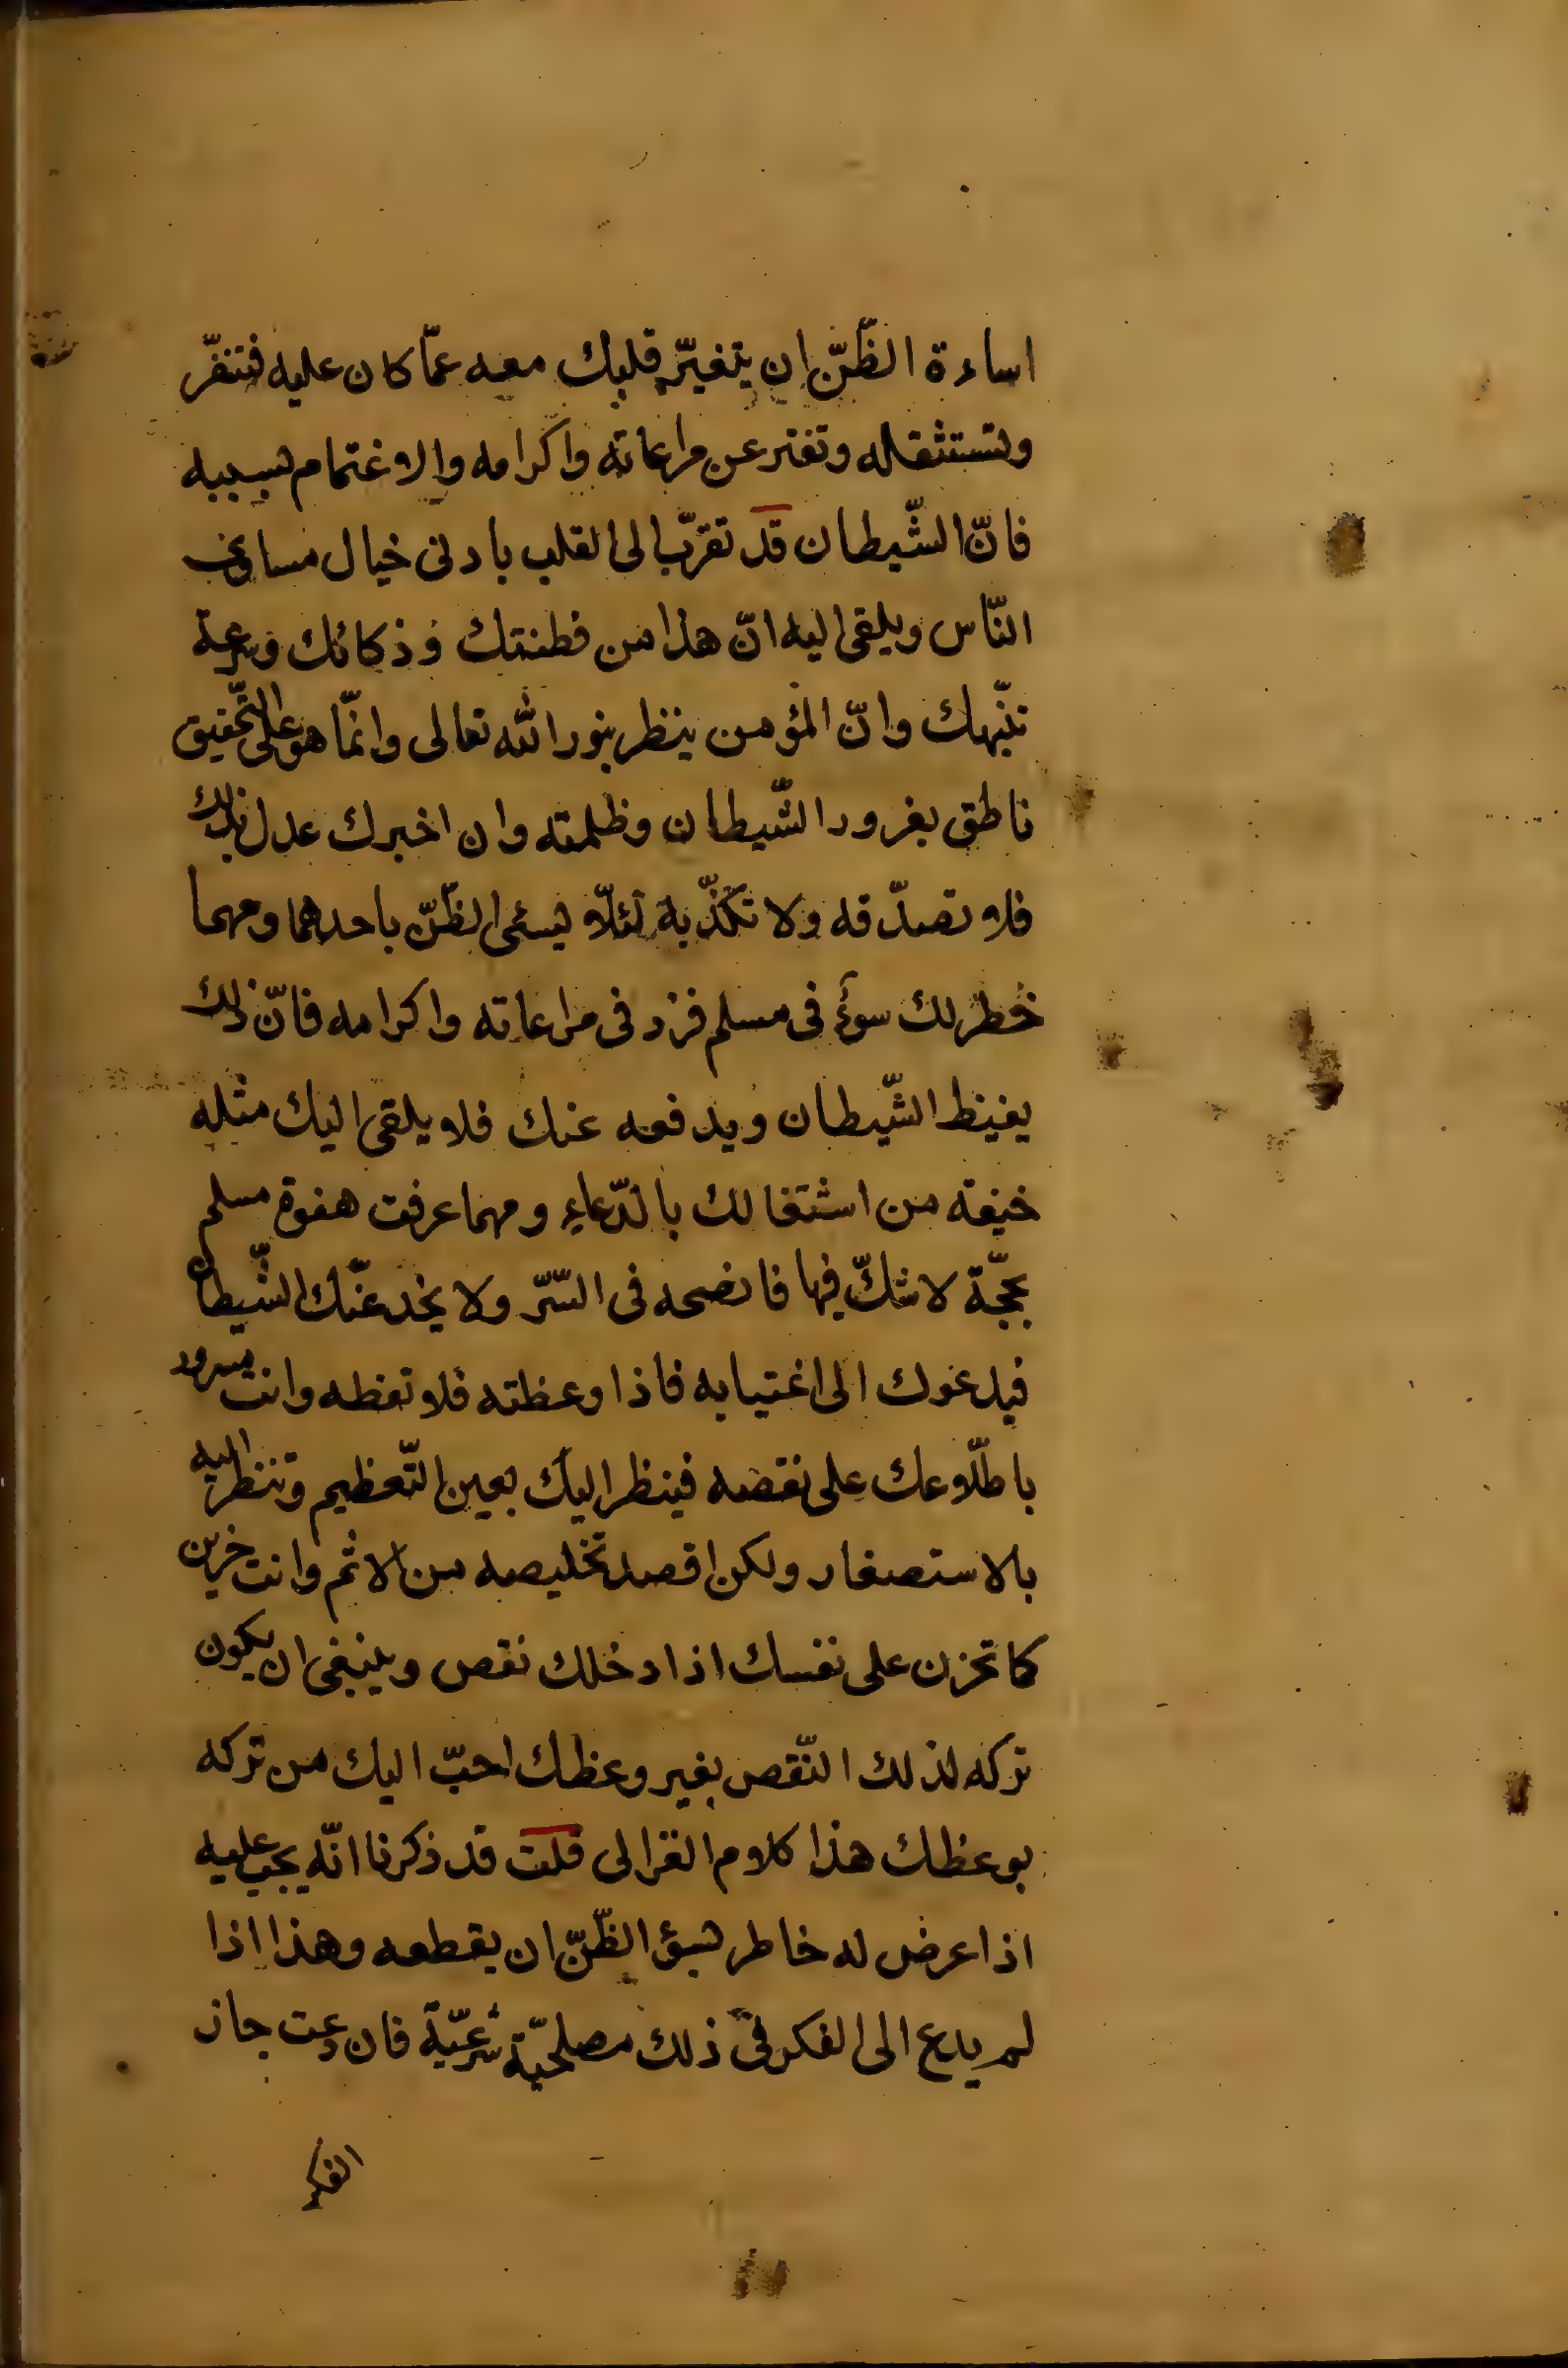 اساءة الظّنّ ان يتغيّر قلبك معه عمّا كان عليه فتنفّر
وتستثقله وتفتر عن مراعاته واكرامه والاغتمام بسببه
فانّ الشّيطان قد تقرّب الى القلب بادنى خيال مساوى
النّاس ويلقى اليه انّ هذا من فطنتك وذكائك وسرعة
تنّبهك وانّ المؤمن ينظر بنور اللّه تعالى وانّما هو على التّحقيق
ناطق بغرور الشّيطان وظلمته وان اخبرك عدل بذلك
فلا تصدّقه ولا تكذّبه لئلّا تسئ الظّنّ باحدهما ومهما
خطر لك سوء فى مسلم فزد فى مراعاته واكرامه فانّ ذلك
يغيظ الشّيطان ويدفعه عنك فلا يلقى اليك مثله
خيفة من اشتغالك بالدّعاء ومهما عرفت هفوة مسلم
بحجّة لا شكّ فيها فانصحه فى السّرّ ولا يخدعنّك الشّيطان
فيدعوك الى اغتيابه فاذا وعظته فلا تعظه وانت مسرور
باطّلاعك على نقصه فينظر اليك بعين التّعظيم وتنظر اليه
بالاستصغار ولكن اقصد تخليصه من الاثم وانت حزين
كما تحزن على نفسك اذا دخلك نقص وينبغى ان يكون
تركه لذلك النّقص بغير وعظك احبّ اليك من تركه
بوعظك هذا كلام الغزالى قلت قد ذكرنا انّه يجب عليه
اذا عرض له خاطر بسوء الظّنّ ان يقطعه وهذا اذا
لم يدع الى الفكر فى ذلك مصلحيّة شرعيّة فان دعت جاز
الفكر